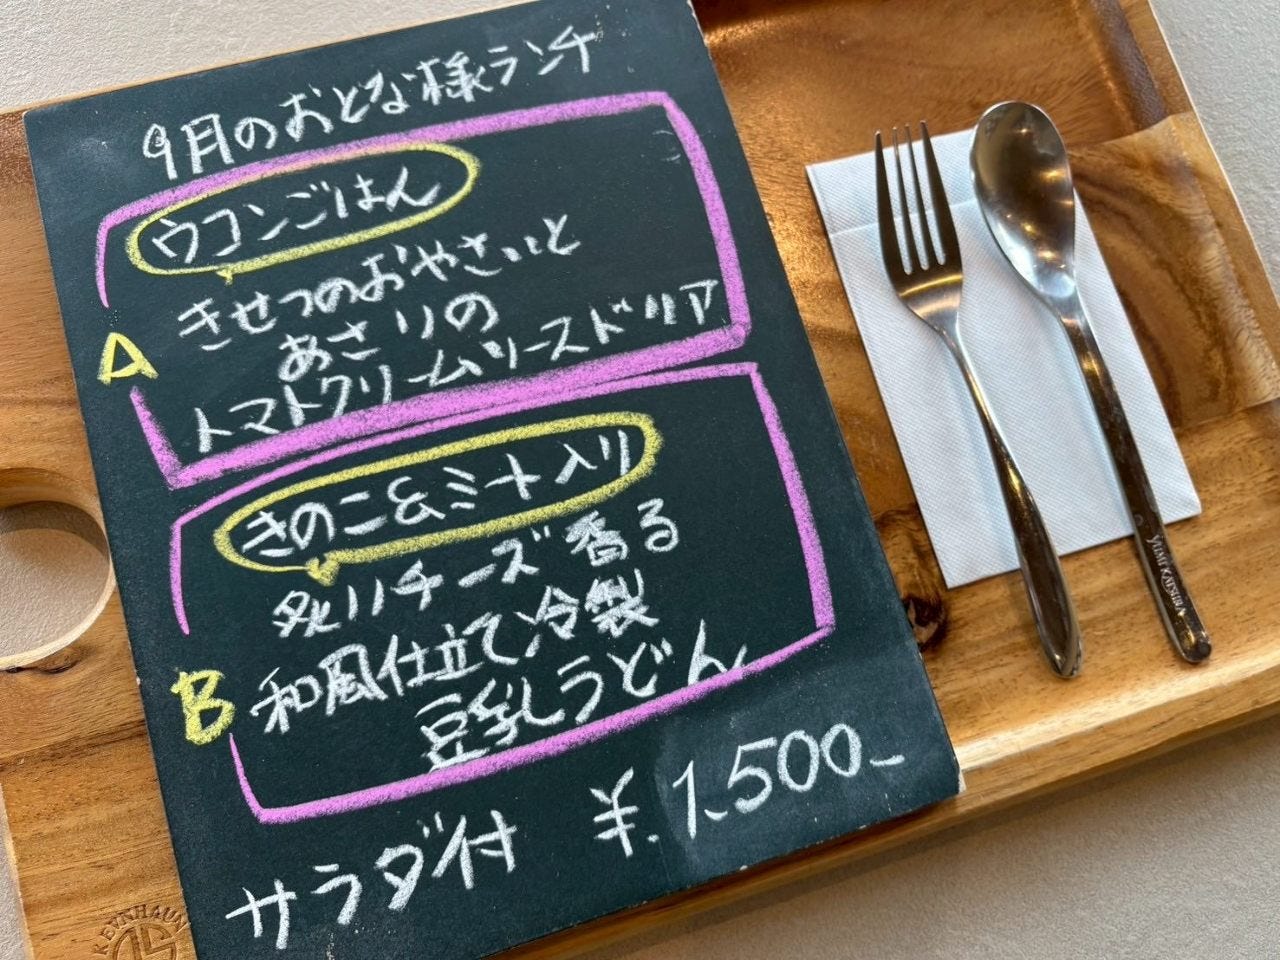 9月のおとな様ランチ
ウコンごはん
きせつのおやさいと
あさりの
トマトクリームソースドリア
A
きのこ&ミート入り
炙りチーズ香る
和風仕立て冷製
豆乳うどん
B
サラダ付 ¥.1.500-
YUMI KATSURA
KEVNHAUN